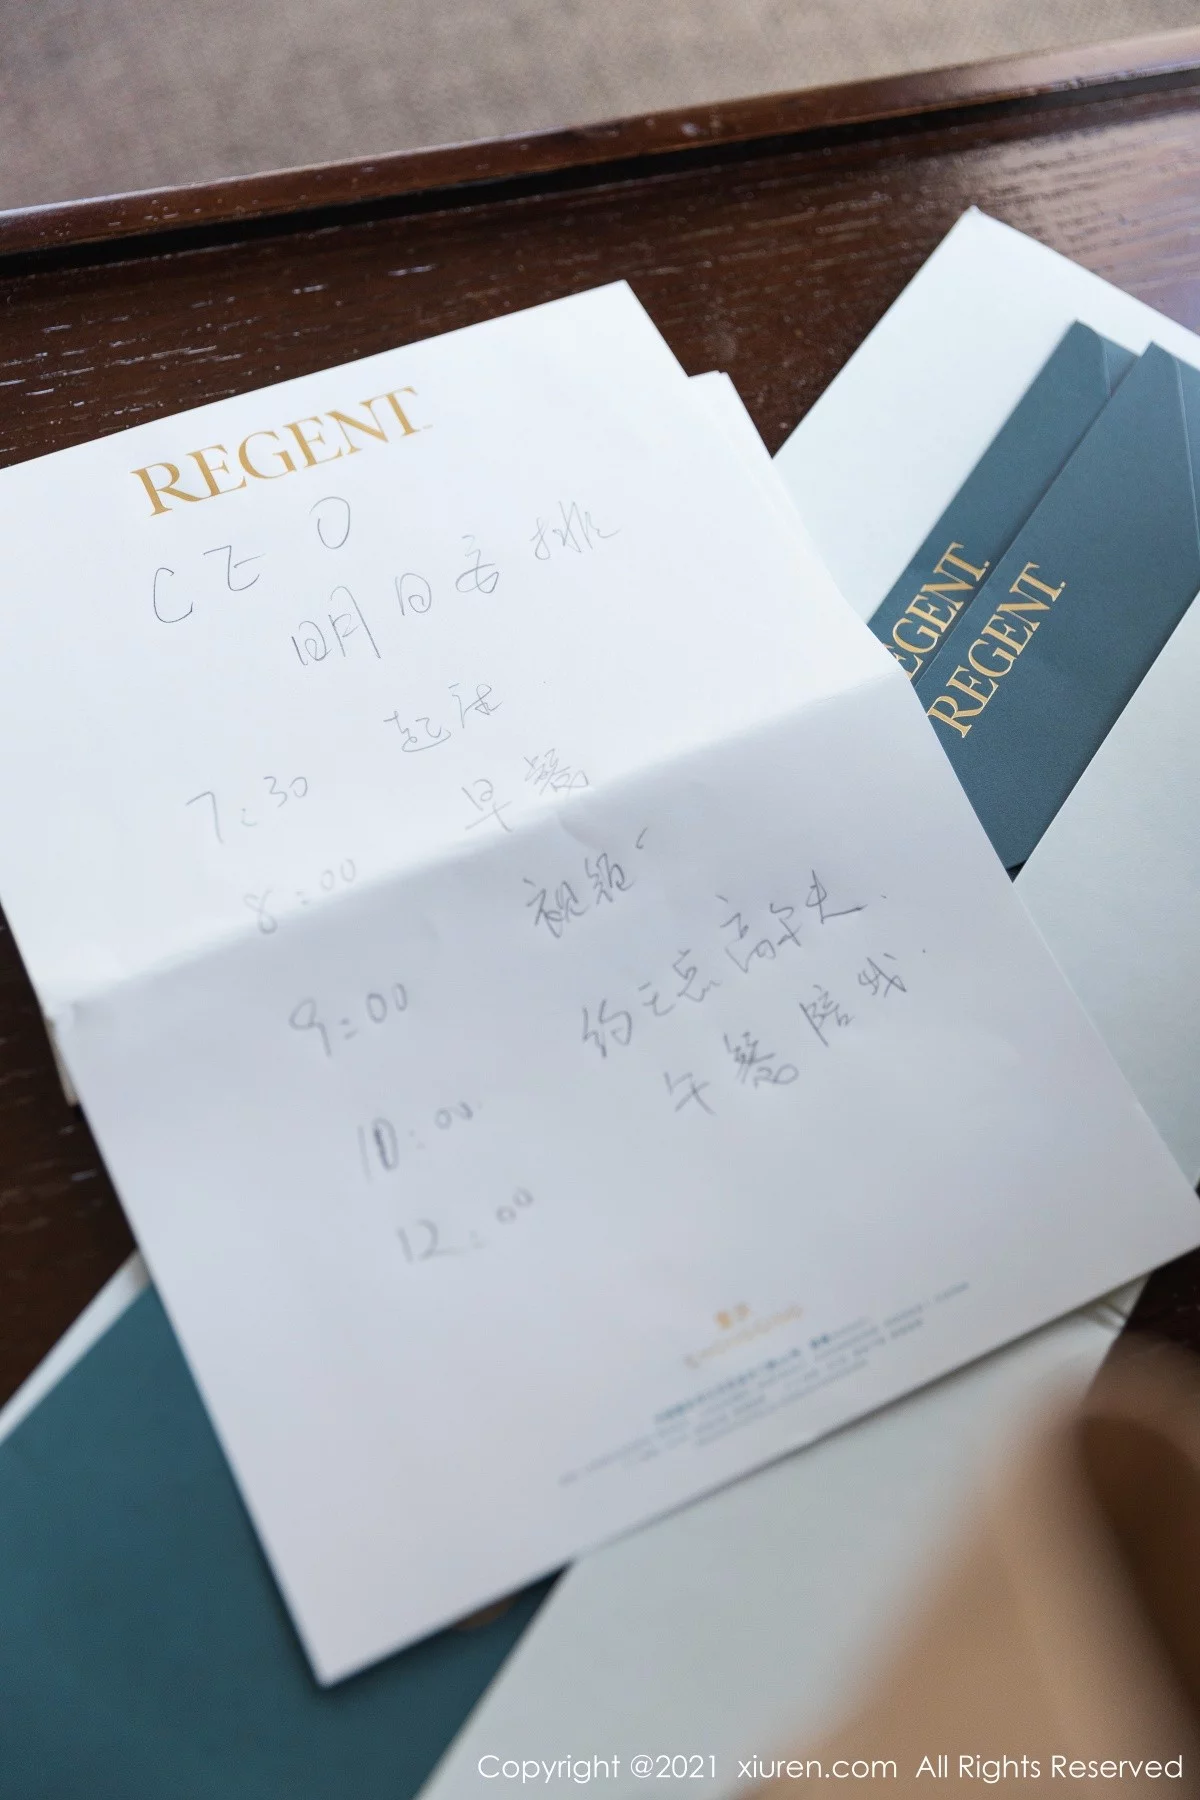 REGENT
CEO
明日安排
7:30 起床
8:00 早餐
9:00 视频
10:00 约王总高尔夫
12:00 午餐陪我
REGENT
REGENT
Copyright @2021 xiuren.com All Rights Reserved